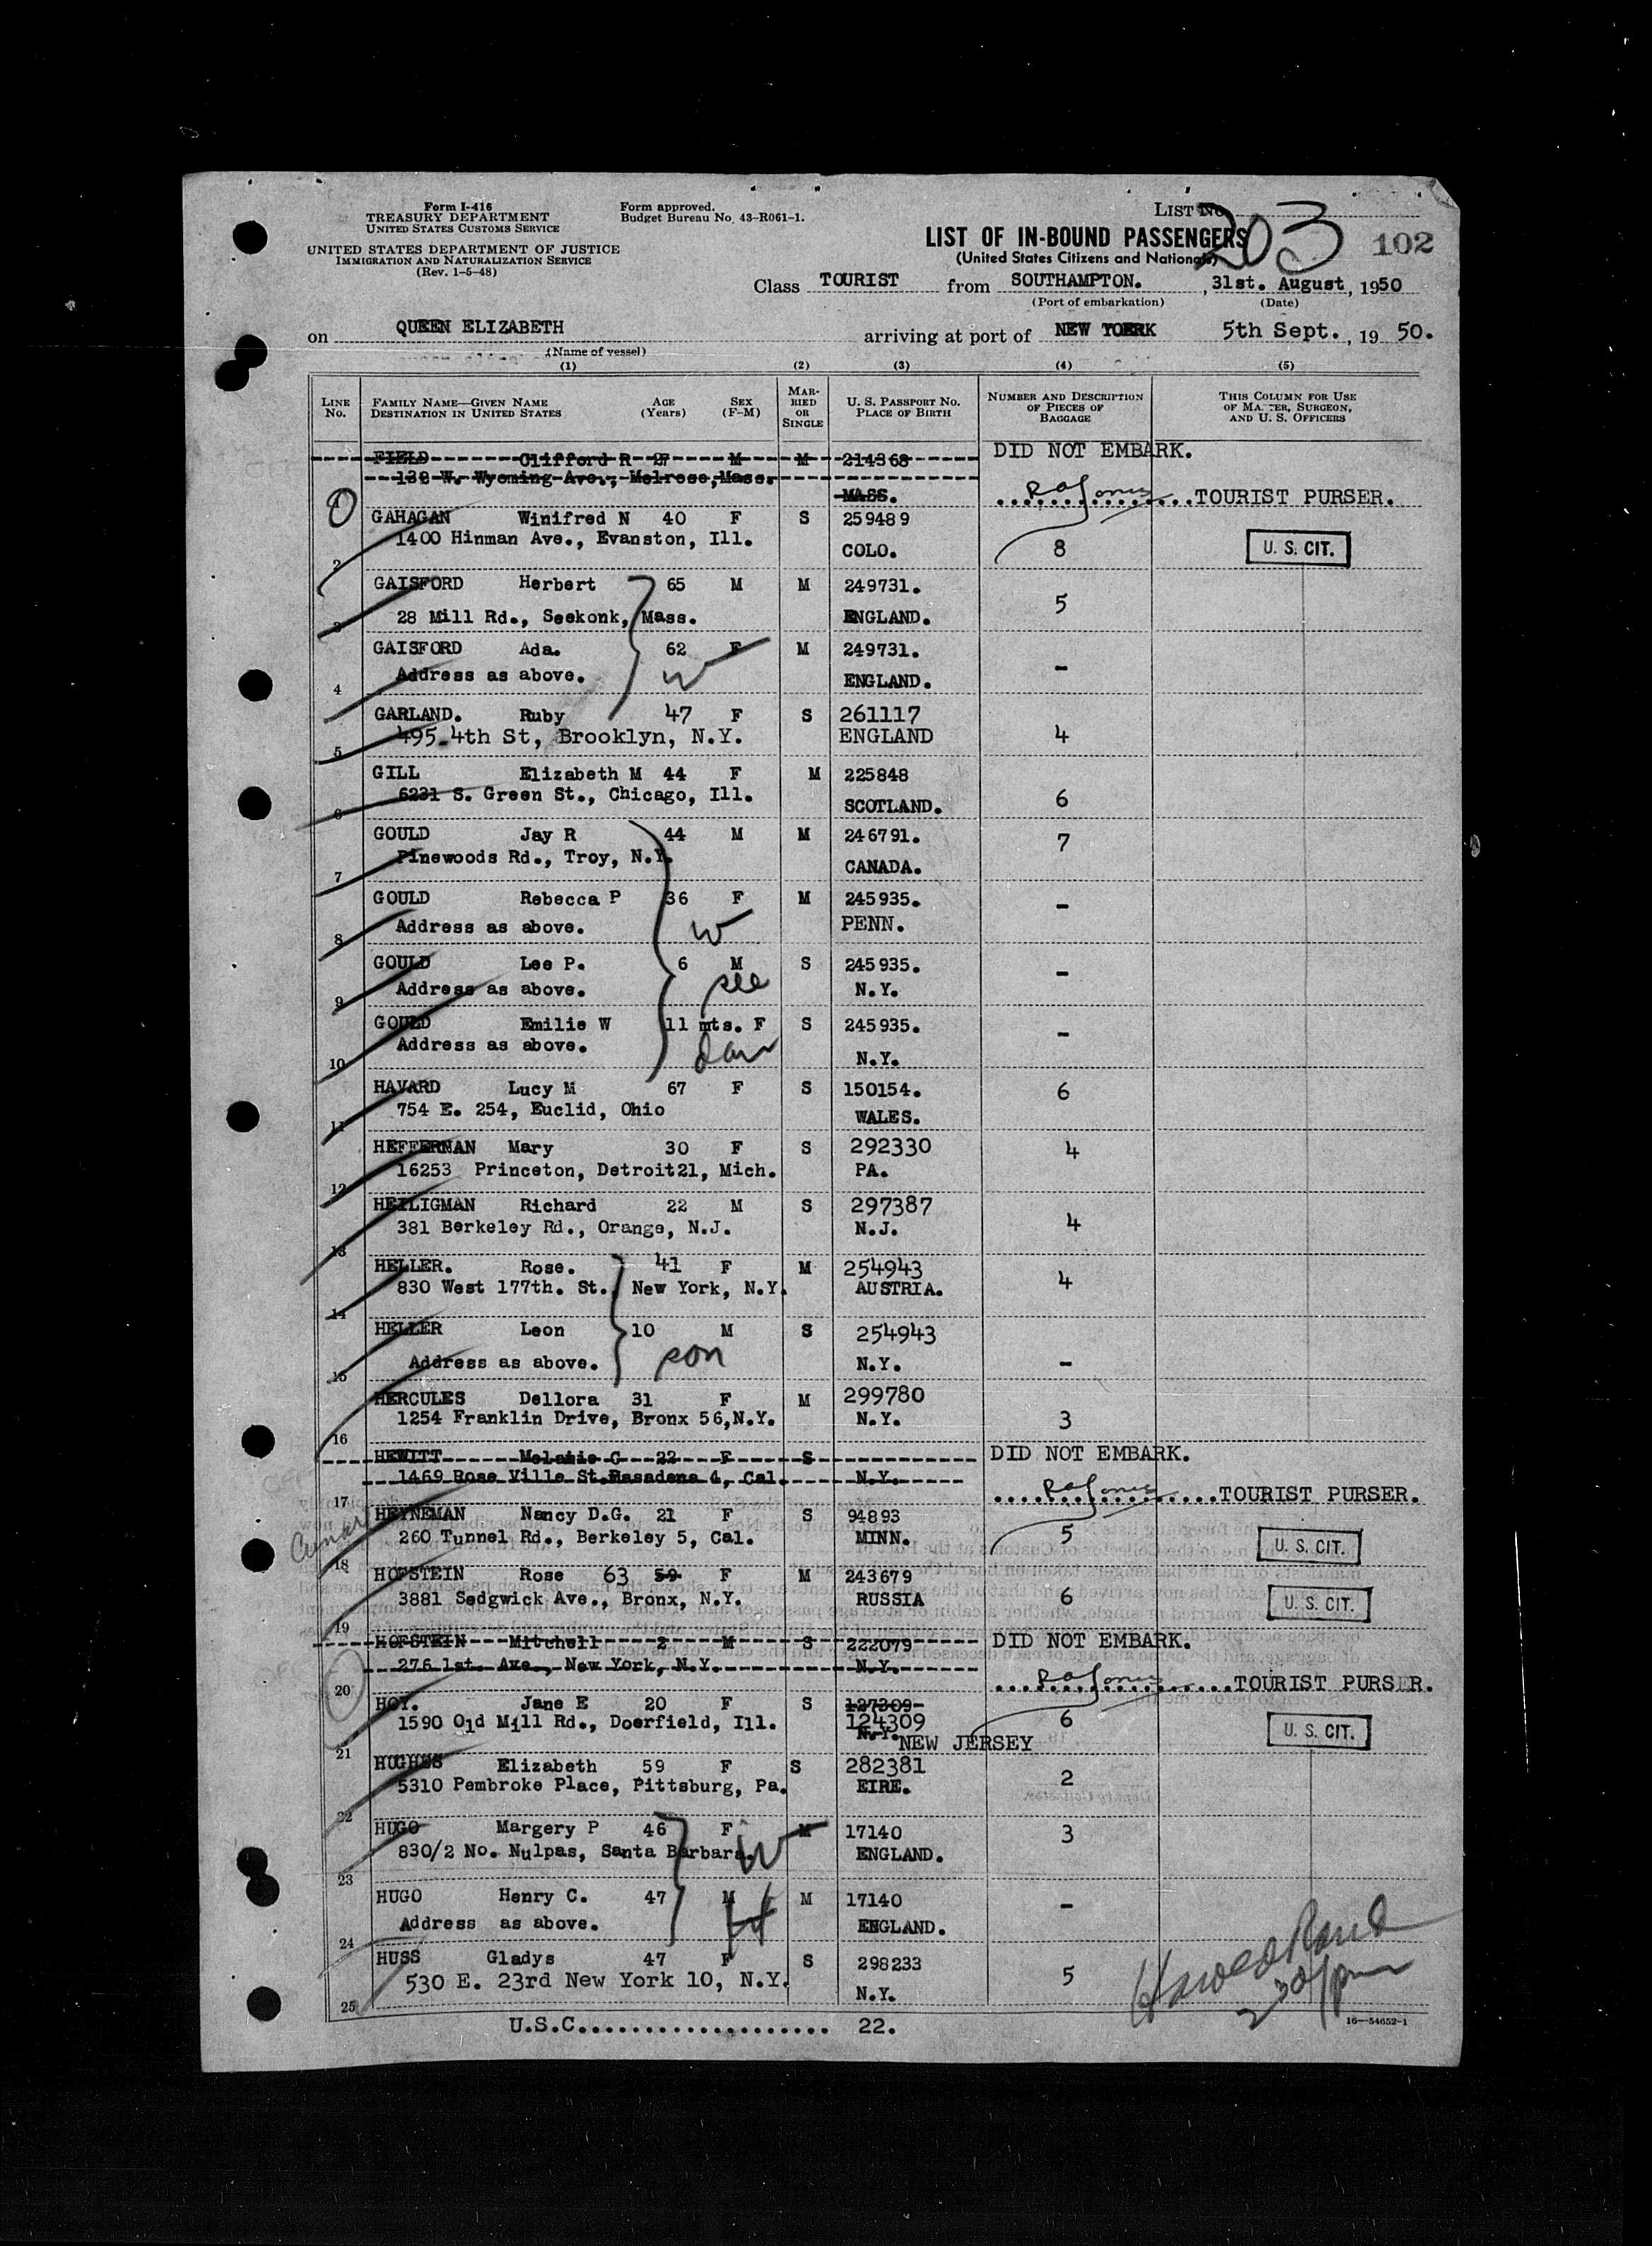 Form I-416
TREASURY DEPARTMENT
UNITED STATES CUSTOMS SERVICE
UNITED STATES DEPARTMENT OF JUSTICE
IMMIGRATION AND NATURALIZATION SERVICE
(Rev. 1-5-48)
Form approved.
Budget Bureau No. 43-R061-1.
LIST No. 203
102
LIST OF IN-BOUND PASSENGERS
(United States Citizens and Nationals)
Class TOURIST from SOUTHAMPTON. , 31st. August, 1950
(Port of embarkation) (Date)
on QUEEN ELIZABETH arriving at port of NEW YOERK 5th Sept., 19 50.
(Name of vessel)
(1) (2) (3) (4) (5)
LINE No. FAMILY NAME—GIVEN NAME DESTINATION IN UNITED STATES AGE (Years) SEX (F-M) MARRIED OR SINGLE U. S. PASSPORT No. PLACE OF BIRTH NUMBER AND DESCRIPTION OF PIECES OF BAGGAGE THIS COLUMN FOR USE OF MASTER, SURGEON, AND U. S. OFFICERS
FIELD Clifford R 27 M M 214368 DID NOT EMBARK.
138 W. Wyoming Ave., Melrose, Mass.
MASS. RAJones TOURIST PURSER.
GAHAGAN Winifred N 40 F S 259489
2 1400 Hinman Ave., Evanston, Ill. COLO. 8 U. S. CIT.
GAISFORD Herbert 65 M M 249731. 5
3 28 Mill Rd., Seekonk, Mass. ENGLAND.
GAISFORD Ada. 62 F M 249731. -
4 Address as above. W ENGLAND.
GARLAND. Ruby 47 F S 261117
5 495 4th St, Brooklyn, N.Y. ENGLAND 4
GILL Elizabeth M 44 F M 225848
6 6231 S. Green St., Chicago, Ill. SCOTLAND. 6
GOULD Jay R 44 M M 246791. 7
7 Pinewoods Rd., Troy, N.Y. CANADA.
GOULD Rebecca P 36 F M 245935. -
8 Address as above. W PENN.
GOULD Lee P. 6 M S 245935. -
9 Address as above. N.Y.
GOULD Emilie W 11 mts. F S 245935. -
10 Address as above. dau N.Y.
HAVARD Lucy M 67 F S 150154. 6
11 754 E. 254, Euclid, Ohio WALES.
HEFFERNAN Mary 30 F S 292330 4
12 16253 Princeton, Detroit21, Mich. PA.
HEILIGMAN Richard 22 M S 297387
13 381 Berkeley Rd., Orange, N.J. N.J. 4
HELLER. Rose. 41 F M 254943
14 830 West 177th. St., New York, N.Y. AUSTRIA. 4
HELLER Leon 10 M S 254943
15 Address as above. son N.Y. -
HERCULES Dellora 31 F M 299780
16 1254 Franklin Drive, Bronx 56,N.Y. N.Y. 3
HEWITT Melanie C 22 F S DID NOT EMBARK.
1469 Rose Ville St.Pasadena 4, Cal. N.Y.
17 RAJones TOURIST PURSER.
HEYNEMAN Nancy D.G. 21 F S 94893
18 260 Tunnel Rd., Berkeley 5, Cal. MINN. 5 U. S. CIT.
HOFSTEIN Rose 63 59 F M 243679
19 3881 Sedgwick Ave., Bronx, N.Y. RUSSIA 6 U. S. CIT.
HOFSTEIN Mitchell 2 M S 222079 DID NOT EMBARK.
276 1st. Ave., New York, N.Y. N.Y.
20 RAJones TOURIST PURSER.
HOY. Jane E 20 F S 127309
1590 Old Mill Rd., Deerfield, Ill. 124309 6 U. S. CIT.
21 N.Y. NEW JERSEY
HUGHES Elizabeth 59 F S 282381
22 5310 Pembroke Place, Pittsburg, Pa. EIRE. 2
HUGO Margery P 46 F M 17140 3
23 830/2 No. Nulpas, Santa Barbara. W ENGLAND.
HUGO Henry C. 47 M M 17140 -
24 Address as above. H ENGLAND.
HUSS Gladys 47 F S 298233
25 530 E. 23rd New York 10, N.Y. N.Y. 5
230/pm
U.S.C.................... 22.
16—54652-1